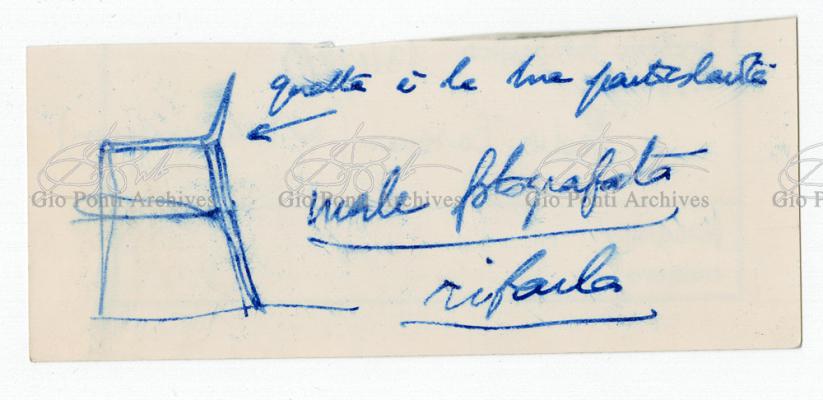 questa è la sua particolarità
male fotografata
rifarla
Gio Ponti Archives Gio Ponti Archives Gio Ponti Archives Gio P